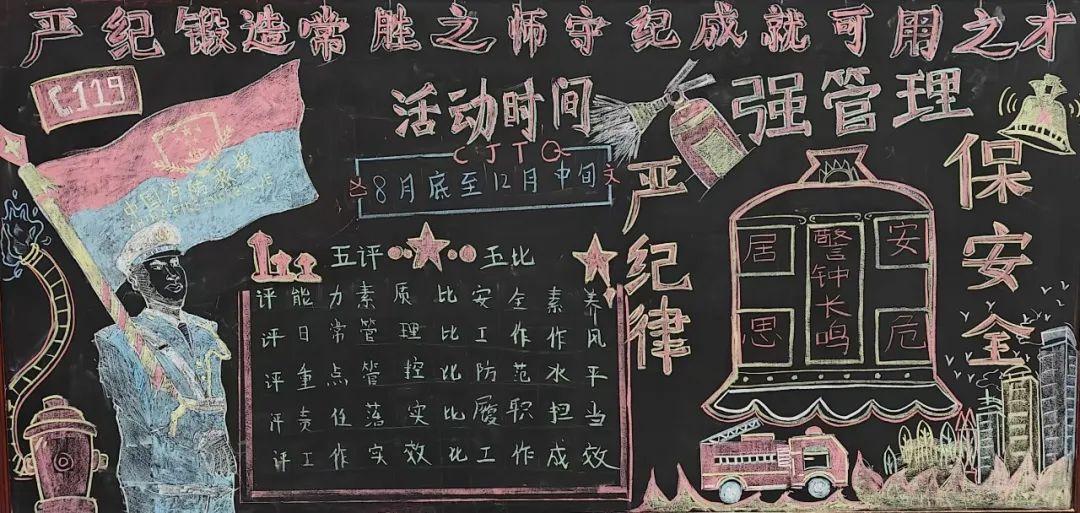 严纪锻造常胜之师守纪成就可用之才
119
中国消防救援
活动时间
CJTQ
8月底至12月中旬
五评 五比
评能力素质比安全素养
评日常管理比工作作风
评重点管控比防范水平
评责任落实比履职担当
评工作实效比工作成效
强管理
严纪律
保安全
居安思危
警钟长鸣